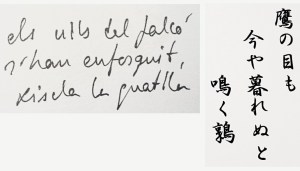 els ulls del falcó
s'han enfosquit,
xiscla la guatlla
鷹の目も
今や暮れぬと
鳴く鶉